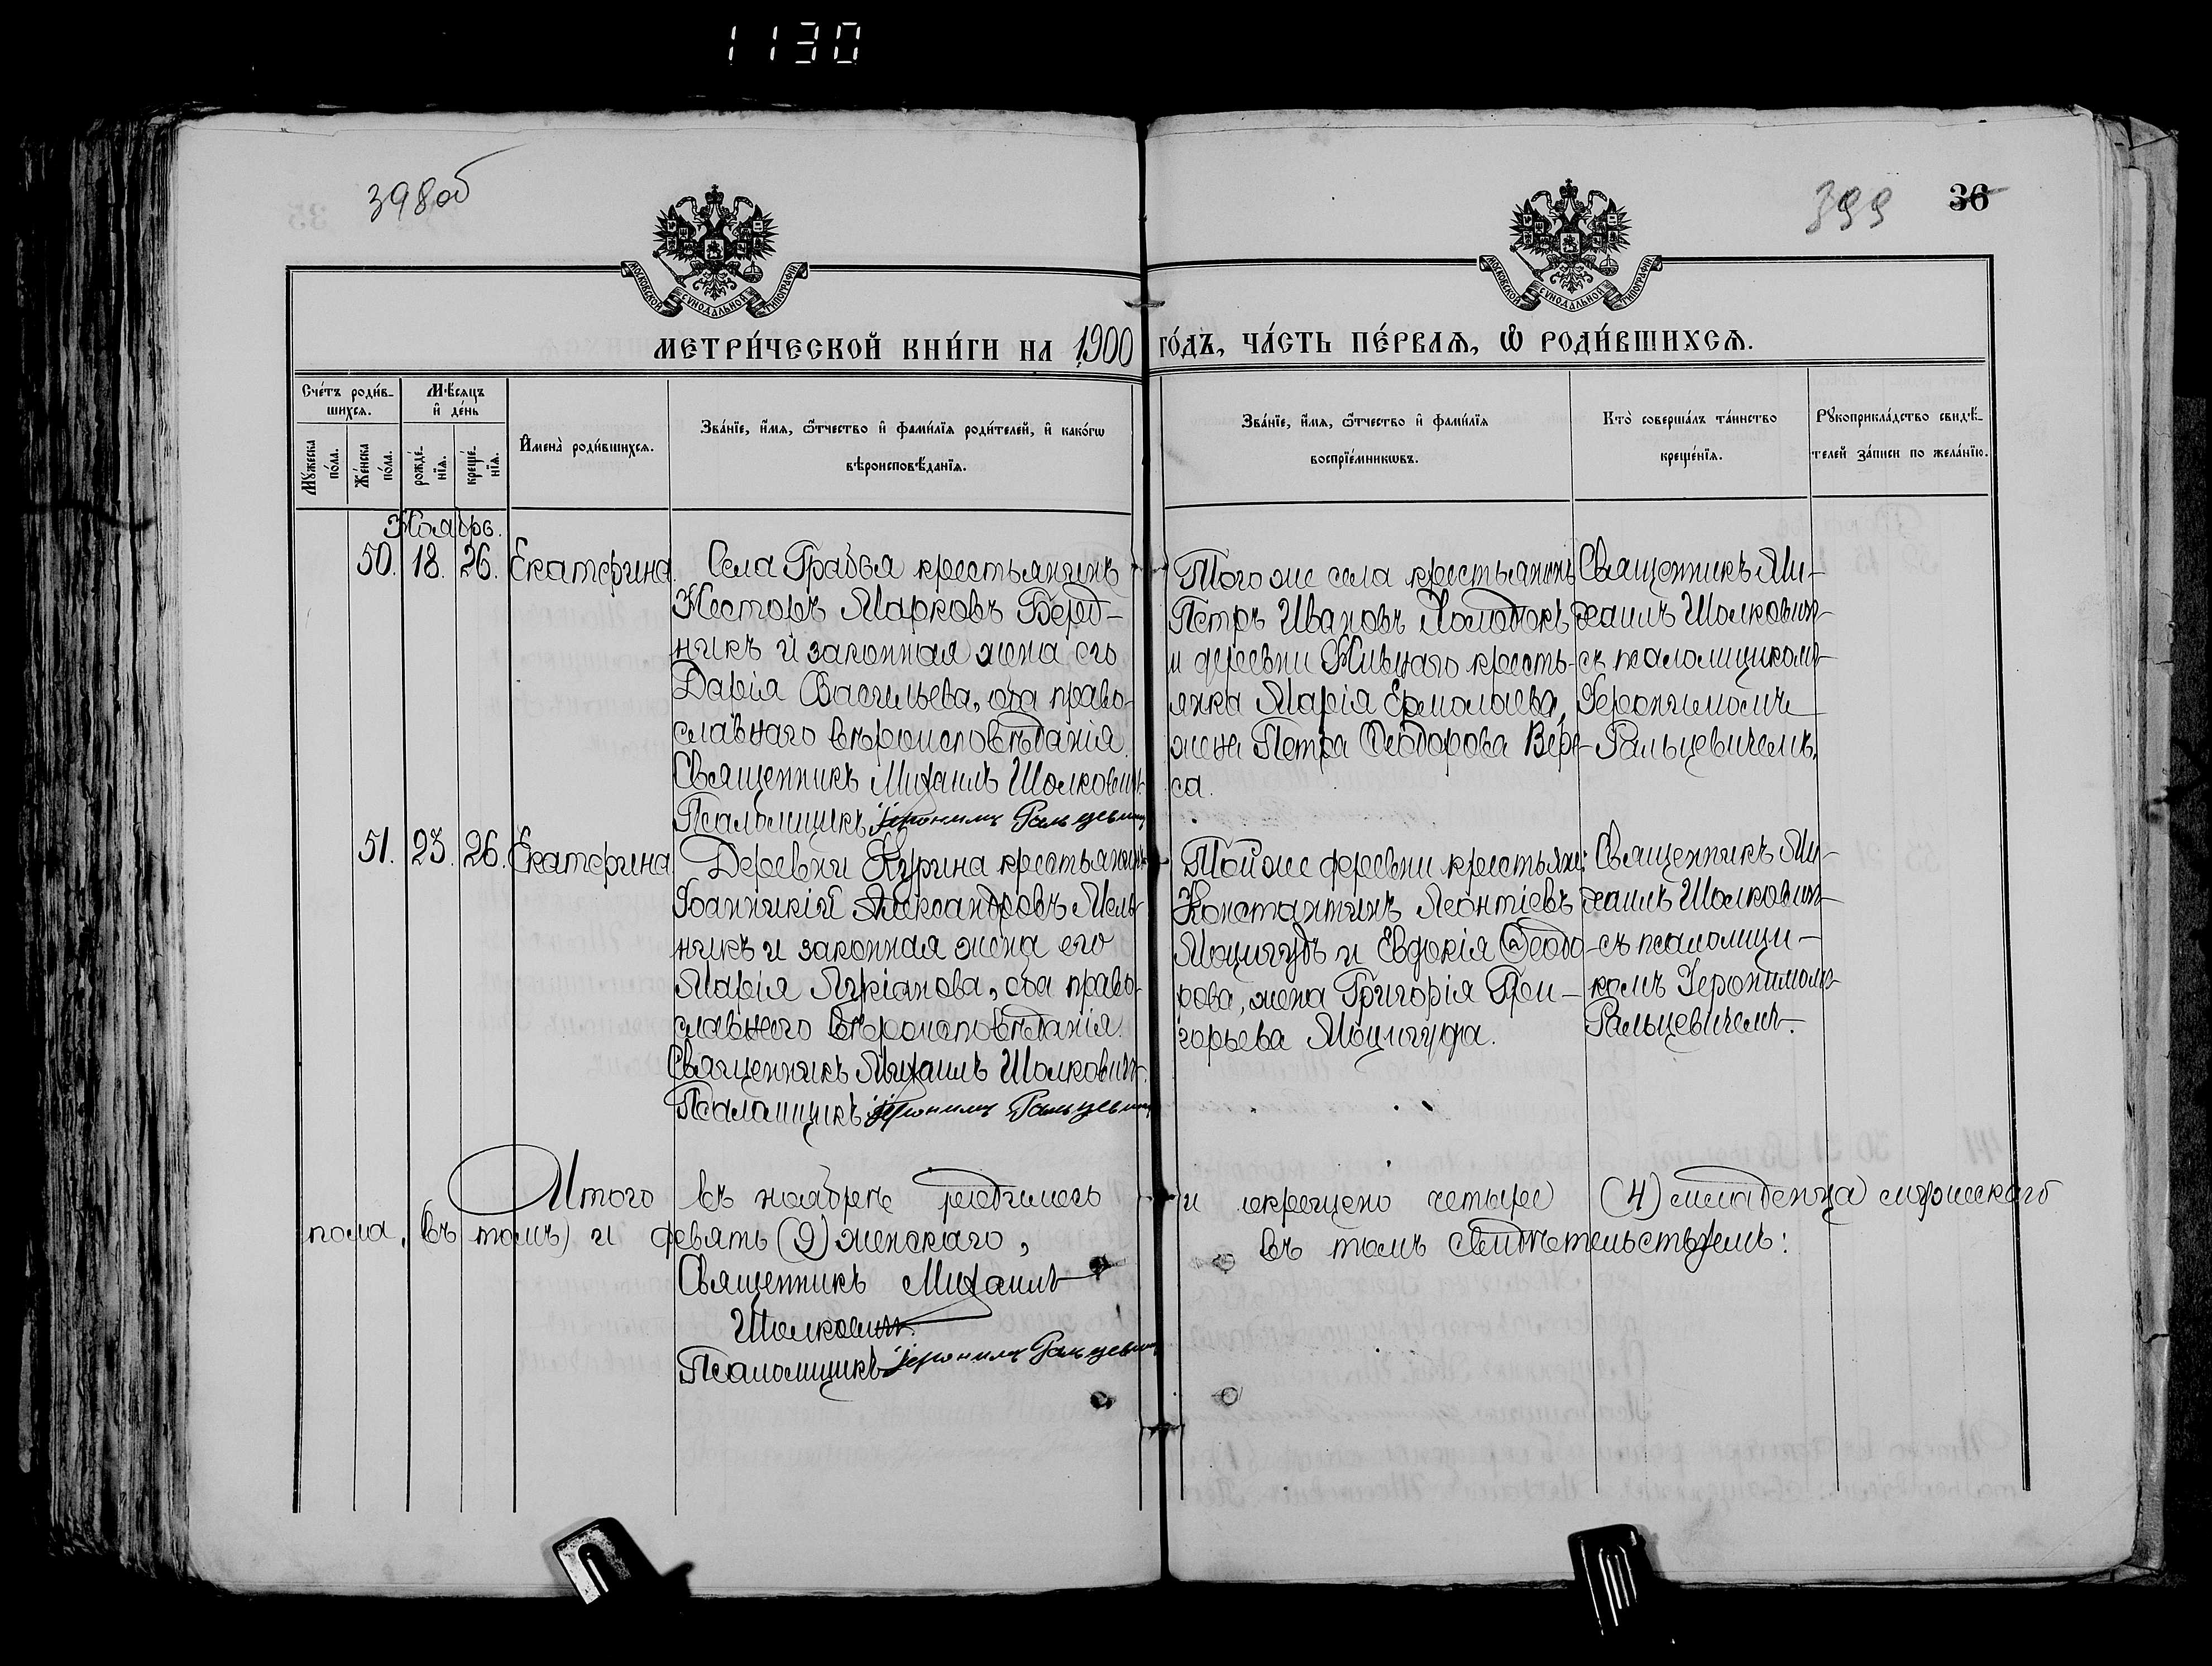 1130
398об
399
36
МОСКОВСКОЙ СѴНОДАЛЬНОЙ ТИПОГРАФІИ
МОСКОВСКОЙ СѴНОДАЛЬНОЙ ТИПОГРАФІИ
МЕТРИ́ЧЕСКОЙ КНИ́ГИ НА 1900 ГО́ДЪ, ЧА́СТЬ ПЕ́РВАѦ, Ѡ҆ РОДИ́ВШИХСѦ.
Сче́тъ роди́в-
шихсѧ.
Мѣ́сяцъ
и҆ де́нь
Мꙋ́жеска
по́ла.
Же́нска
по́ла.
рожде́-
нїѧ.
креще́-
нїѧ.
И҆мена̀ роди́вшихсѧ.
Зва́нїе, и҆́мѧ, ѻ҆́тчество и҆ фами́лїѧ роди́телей, и҆ како́гѡ
вѣроисповѣ́данїѧ.
Зва́нїе, и҆́мѧ, ѻ҆́тчество и҆ фами́лїѧ
воспрїе́мникѡвъ.
Кто̀ соверша́лъ та́инство
креще́нїѧ.
Рꙋкоприкла́дство свидѣ́-
телей за́писи по жела́нїю.
Ноябрь.
50. 18. 26. Екатерина.
Села Грабья крестьянинъ
Несторъ Марковъ Беред-
никъ и законная жена его
Дарія Васильева, оба право-
славнаго вѣроисповѣданія.
Священникъ Михаилъ Шолковичъ
Псаломщикъ Іеронимъ Гальцевичъ
Того же села крестьянинъ
Петръ Ивановъ Холодюкъ
и деревни Жывнаго кресть-
янка Марія Ермолаева,
жена Петра Ѳеодорова Вере-
са.
Священникъ Ми-
хаилъ Шолковичъ
съ псаломщикомъ
Іеронимомъ
Гальцевичемъ.
51. 23. 26. Екатерина
Деревни Курина крестьянинъ
Іоанникій Александровъ Мель-
никъ и законная жена его
Марія Лукіанова, оба право-
славнаго вѣроисповѣданія.
Священникъ Михаилъ Шолковичъ.
Псаломщикъ Іеронимъ Гальцевичъ
Той же деревни крестьяне:
Константинъ Леонтіевъ
Моцигудъ и Евдокія Ѳеодо-
рова, жена Григорія Гри-
горьева Моцигуда.
Священникъ Ми-
хаилъ Шолковичъ
съ псаломщи-
комъ Іеронимомъ
Гальцевичемъ.
Итого въ ноябрѣ родилось и окрещено четыре (4) младенца мужескаго
пола, (въ томъ) и девять (9) женскаго, въ томъ свидѣтельствуемъ:
Священникъ Михаилъ
Шолковичъ.
Псаломщикъ Іеронимъ Гальцевичъ